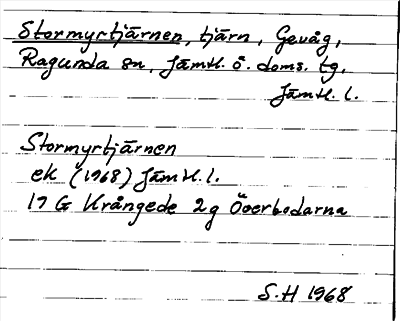 Stormyrtjärnen, tjärn, Gevåg,
Ragunda sn, Jämtl. ö. doms. tg.
Jämtl. l.
Stormyrtjärnen
ek (1968) Jämtl. l.
19 G Krångede 2g Överbodarna
S.H 1968